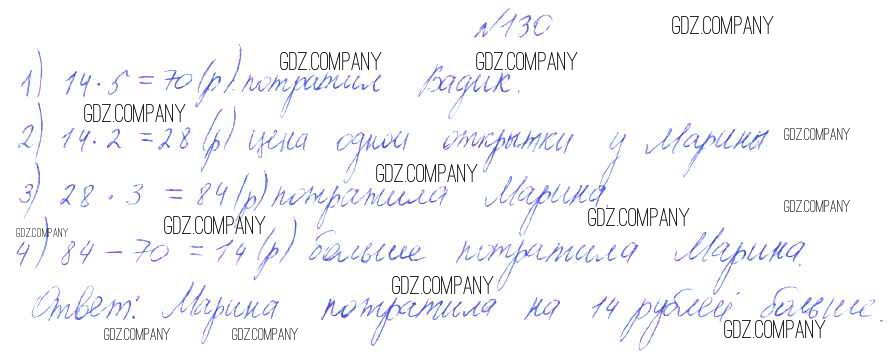 №130 GDZ.COMPANY
GDZ.COMPANY GDZ.COMPANY
1) 14 · 5 = 70 (р) потратил Вадик.
GDZ.COMPANY
2) 14 · 2 = 28 (р) цена одной открытки у Марины GDZ.COMPANY
GDZ.COMPANY
3) 28 · 3 = 84 (р) потратила Марина.
GDZ.COMPANY GDZ.COMPANY GDZ.COMPANY GDZ.COMPANY
4) 84 – 70 = 14 (р) больше потратила Марина.
GDZ.COMPANY
Ответ: Марина потратила на 14 рублей больше.
GDZ.COMPANY GDZ.COMPANY GDZ.COMPANY